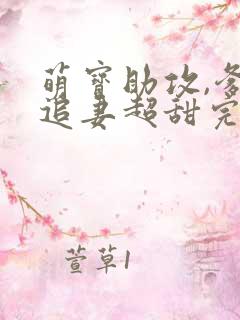 萌宝助攻,爹
追妻超甜完
萱草1